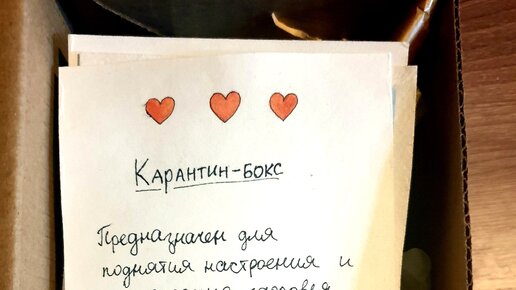 Карантин-бокс
Предназначен для
поднятия настроения и